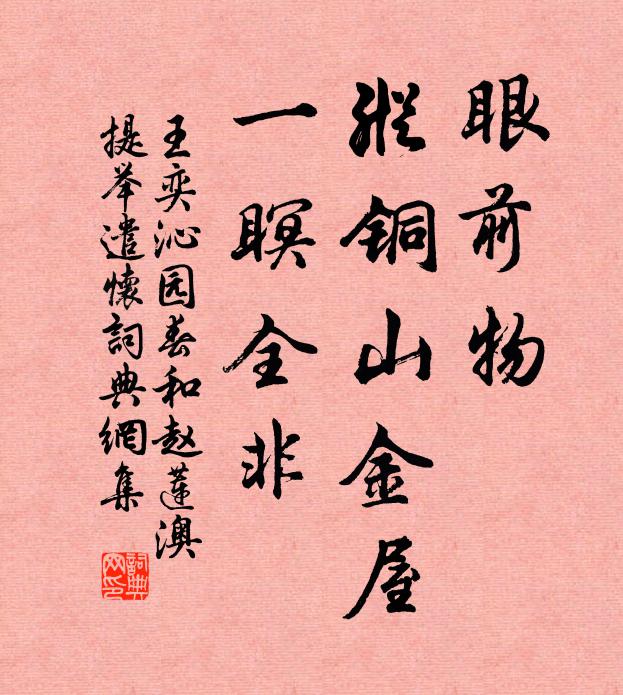 眼前物
纵铜山金屋
一瞑全非
王奕沁园春和赵莲澳
提举遣懷詞典網集
詞典
网印